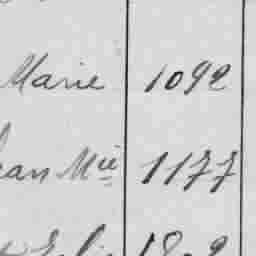 Marie 1092
Jean Mie 1177